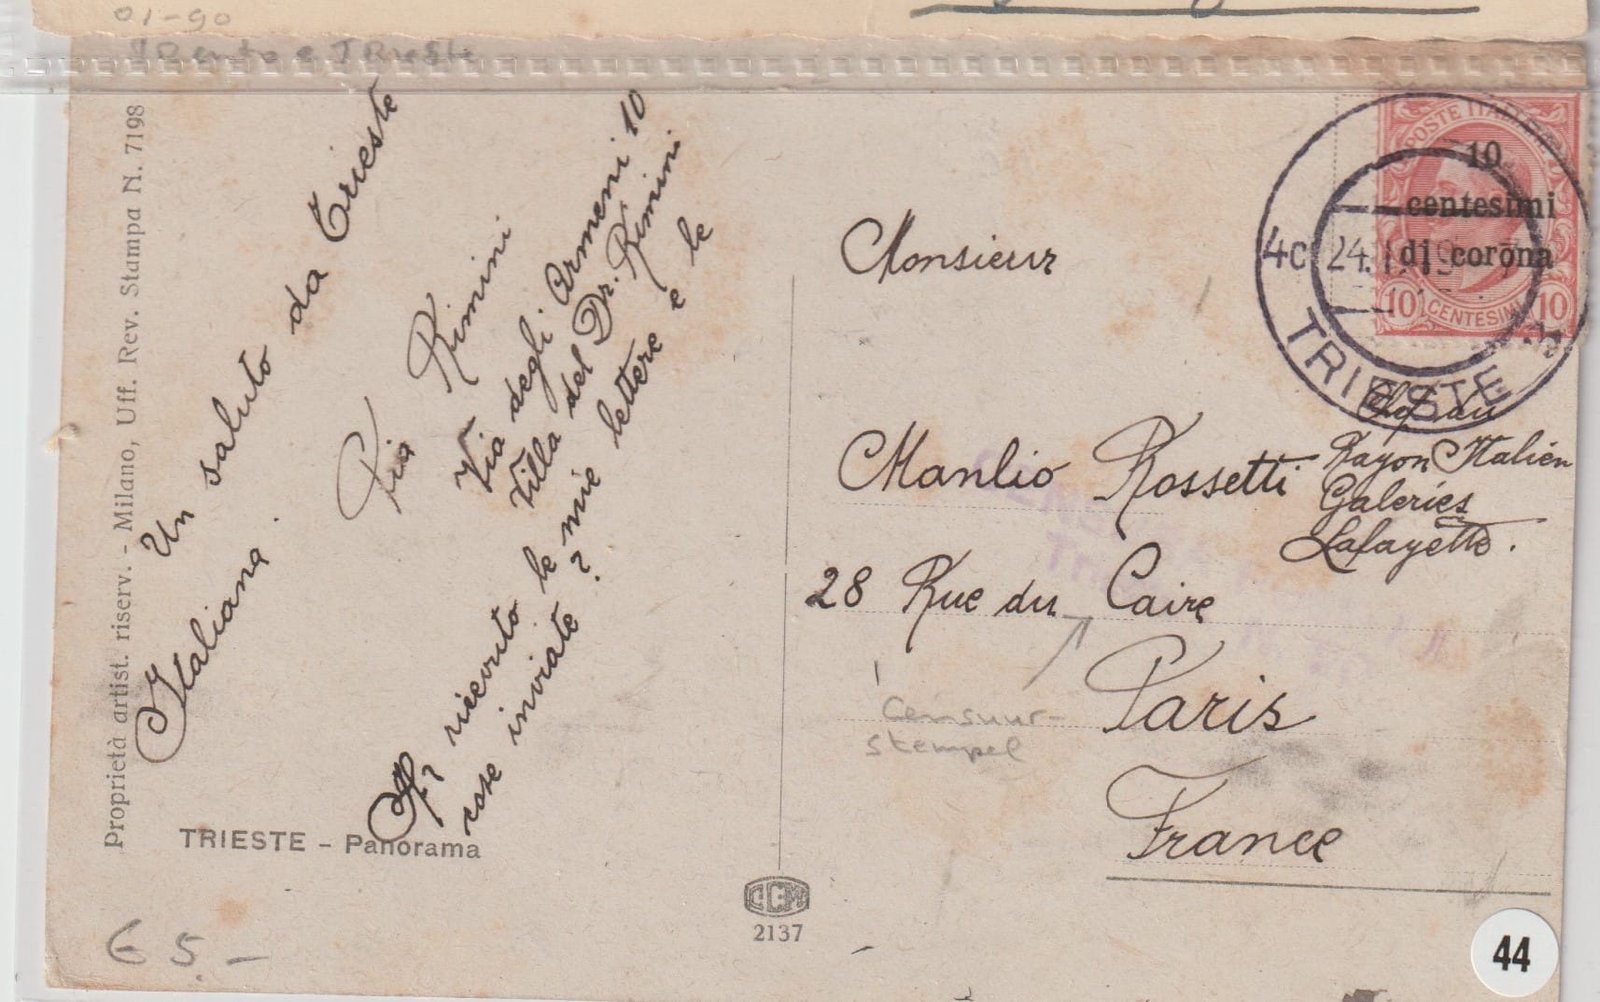 01-90
Trento e Trieste
Proprietà artist. riserv. - Milano, Uff. Rev. Stampa N. 7198
Un saluto da Trieste
Italiana.
Pia Rimini
Via degli Armeni 10
Villa del Dr. Rimini
Ha ricevuto le mie lettere e le
rose inviate?
TRIESTE - Panorama
€ 5.-
CCM
2137
POSTE ITALIANE
10
centesimi
di corona
10 CENTESIMI 10
4c 24.
TRIESTE
Monsieur
Manlio Rossetti
Chef du
Rayon Italien
Galeries
Lafayette.
28 Rue du Caire
Paris
France
Censuur-
stempel
44